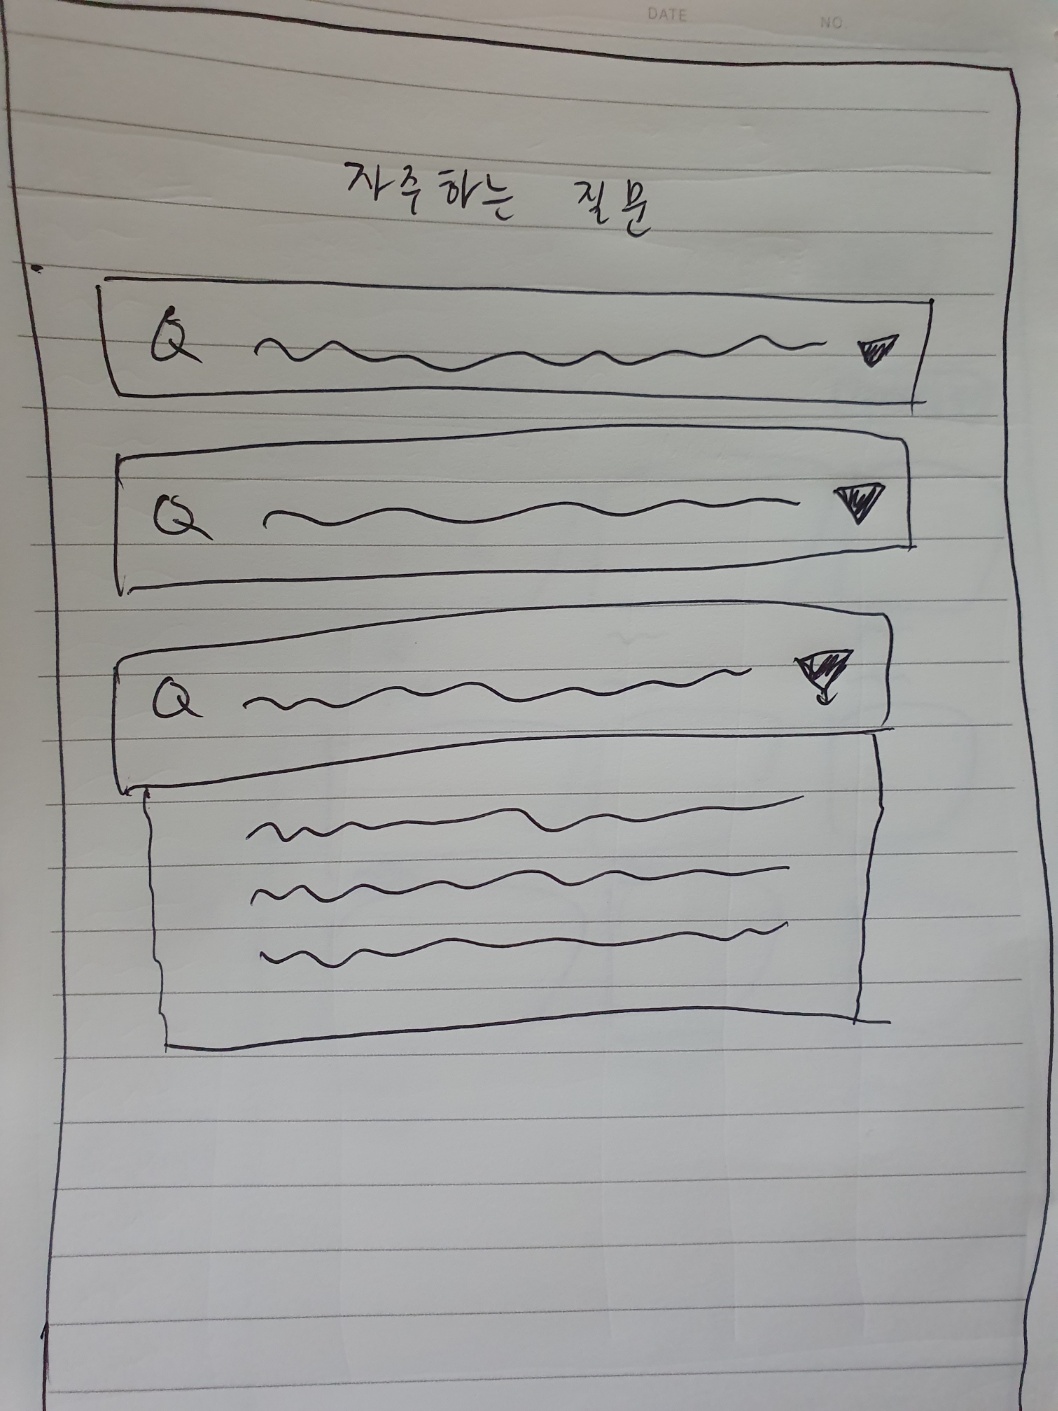 DATE
NO
자주하는 질문
Q
Q
Q